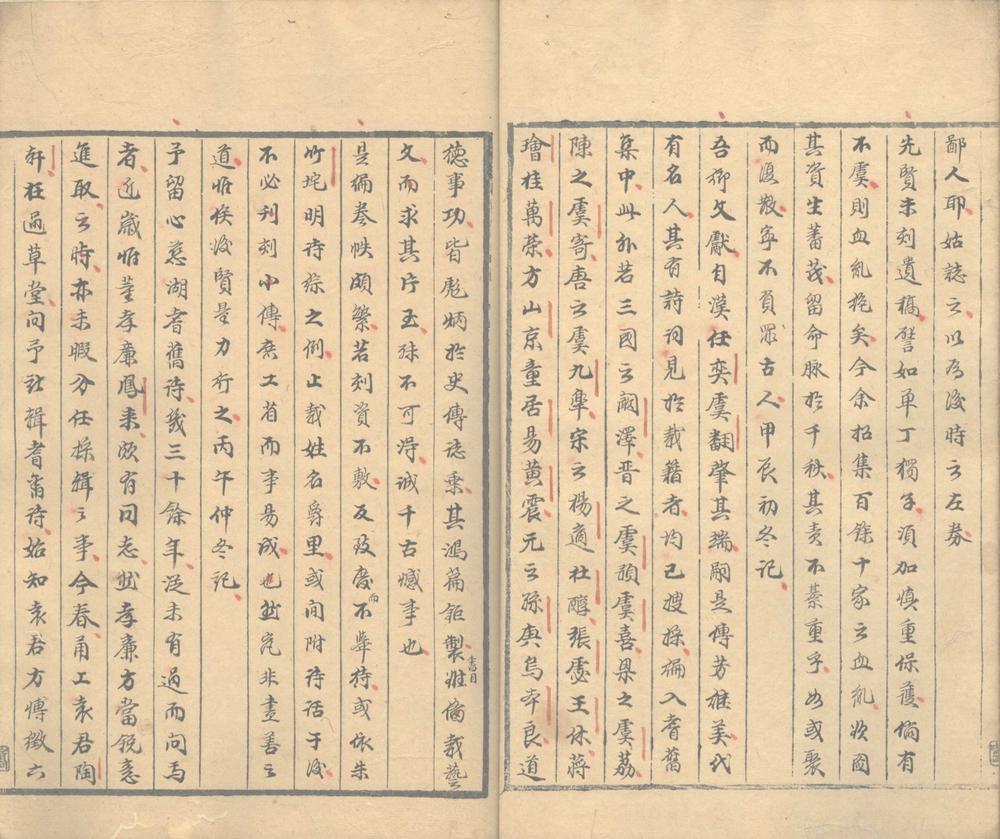 鄙人耶姑誌之以為後時之左券
先賢未刻遺稿譬如單丁獨子須加慎重保護倘有
不虞則血胤挖矣今余招集百餘十家之血胤欲圖
其資生蕃茂留命脉於千秋其責不綦重乎如或聚
而復散寧不負眾古人甲辰初冬記
吾鄉文獻自漢任奕虞翻肇其端嗣是傳芳雄美代
有名人其有詩詞見於載籍者均已搜採編入耆舊
集中此外若三國之闞澤晉之虞預虞喜梁之虞荔
陳之虞寄唐之虞九皋宋之楊適杜醇張慮王休蔣
璯桂萬榮方山京童居易黄震元之孫庚烏本良道
德事功皆彪炳於史傳誌乘其鴻篇鉅製雖備載藝
文書目而求其片玉殊不可得诚千古憾事也
是編卷帙頗繁若刻資不敷反致廢而不舉特或依朱
竹垞明诗综之例止载姓名爵里或间附诗话于後
不必刊刻小傳庶工省而事易成也然究非盡善之
道惟俟後賢量力行之丙午仲冬記
予留心慈湖耆舊诗幾三十餘年迄未有過而問焉
者近歲惟董孝廉鳳来頗有同志然孝廉方當銳意
進取之時亦未暇分任採緝之事今春甬工袁君陶
軒枉過草堂问予社輯耆舊诗始知袁君方博徵六